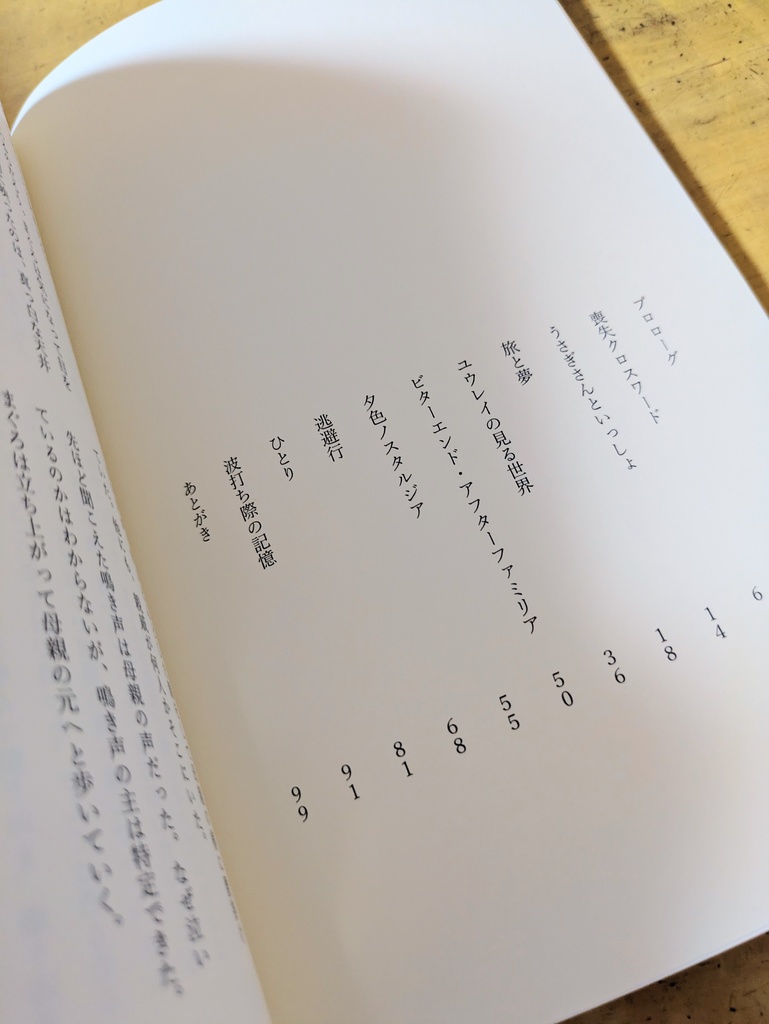 プロローグ
喪失クロスワード 6
うさぎさんといっしょ 14
旅と夢 18
ユウレイの見る世界 36
ビターエンド・アフターファミリア 50
夕色ノスタルジア 55
逃避行 68
ひとり 81
波打ち際の記憶 91
あとがき 99
先ほど聞こえた鳴き声は母親の声だった。なぜ泣い
ているのかはわからないが、鳴き声の主は特定できた。
まぐろは立ち上がって母親の元へと歩いていく。